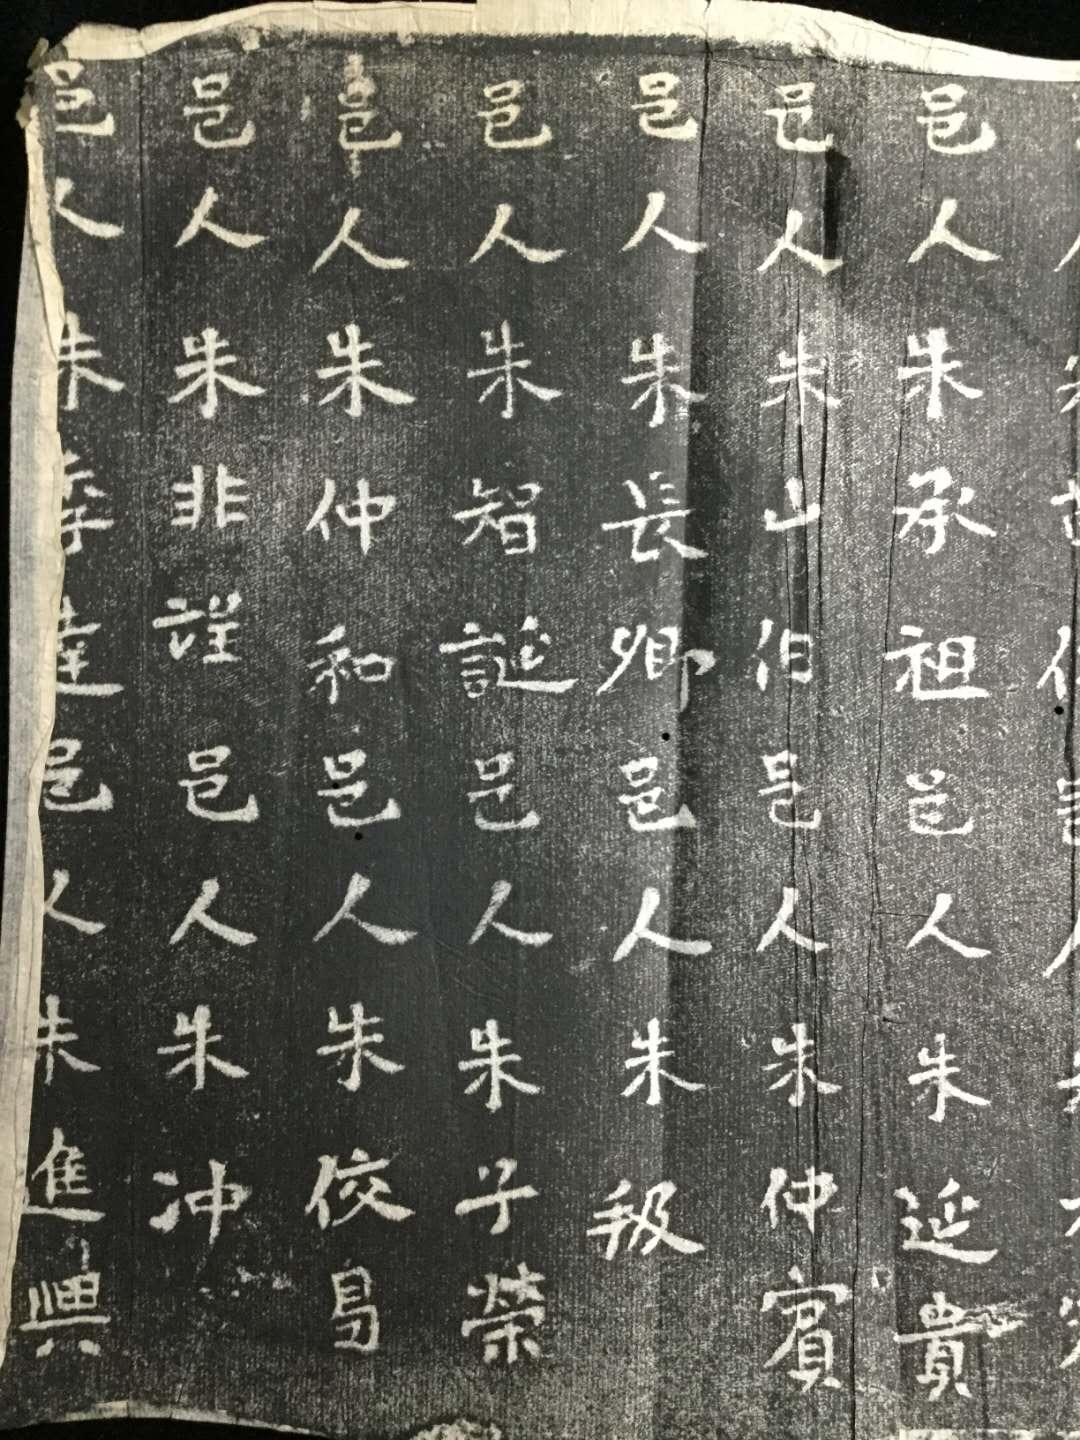 邑人朱承祖邑人朱延貴
邑人朱山伯邑人朱仲賓
邑人朱長卿邑人朱
邑人朱智誕邑人朱子榮
邑人朱仲和邑人朱
邑人朱非邑人朱冲
邑人朱邑人朱進興